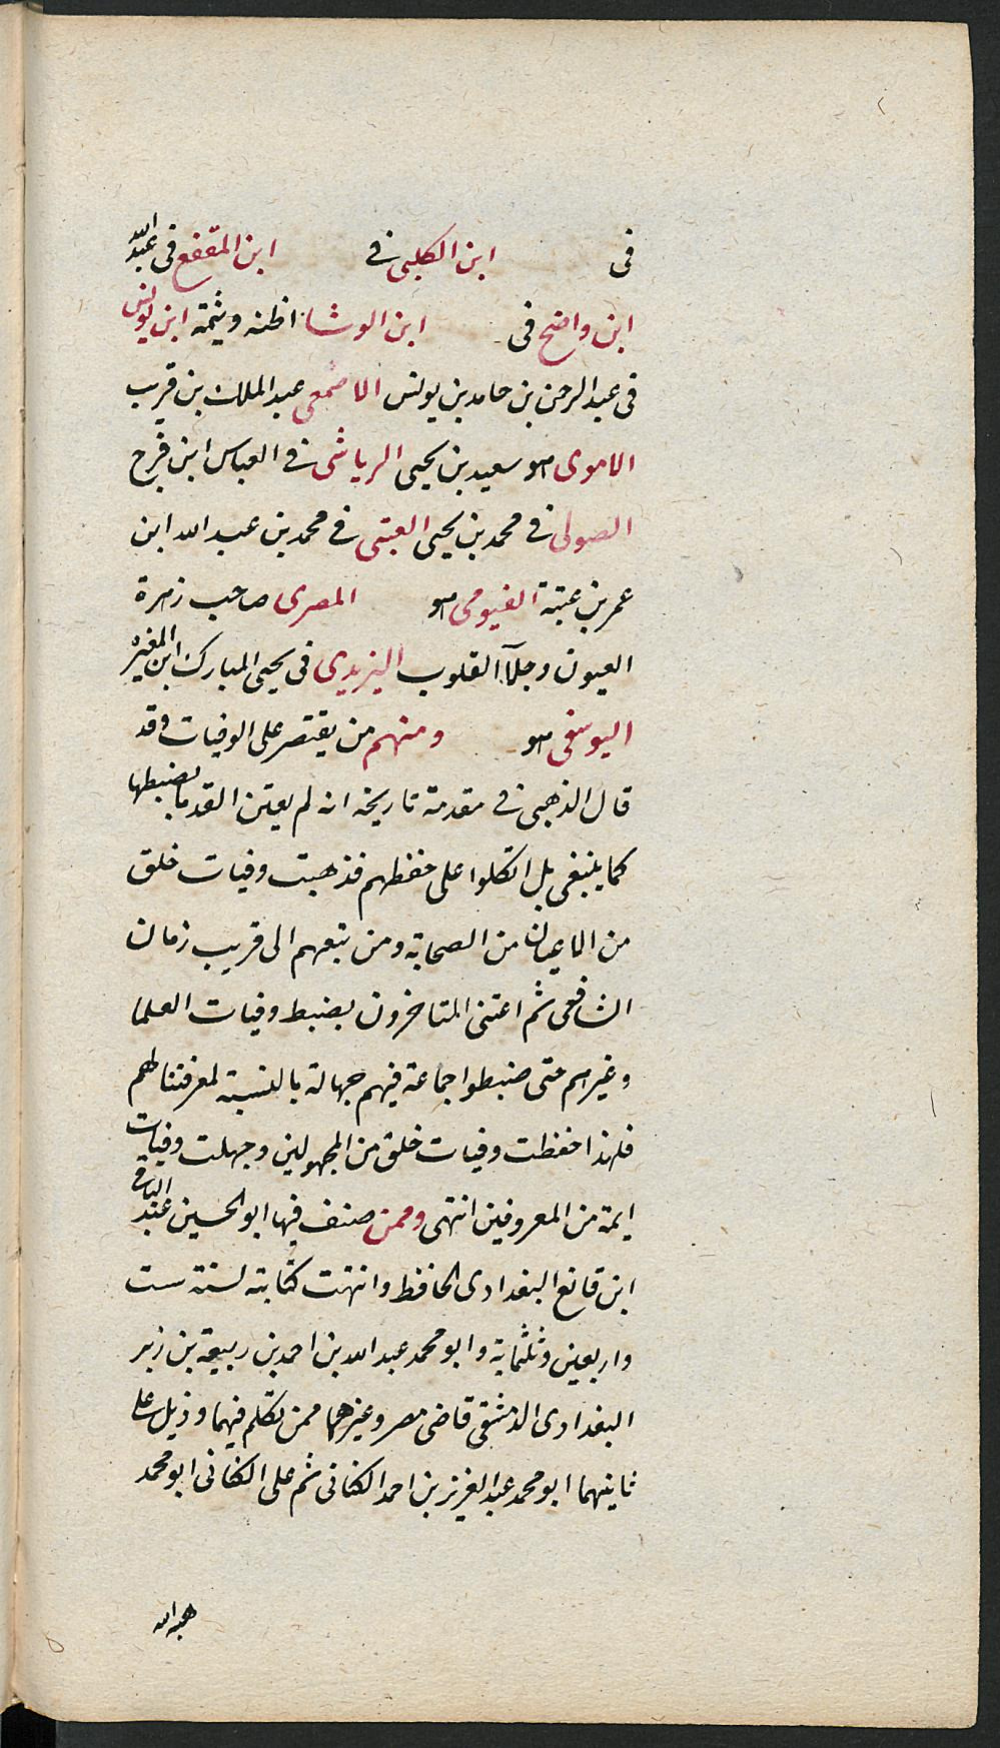 فى ابن الكلبى فى ابن المقفع فى عبد الله
ابن واضح فى ابن الوشا اظنه وثيمة ابن يونس
فى عبد الرحمن بن حامد بن يونس الاصمعى عبد الملك بن قريب
الاموى هو سعيد بن يحيى الرياشى فى العباس ابن فرج
الصولى فى محمد بن يحيى العتبى فى محمد بن عبد الله ابن
عمر بن عتبة الفيومى هو المصرى صاحب زهرة
العيون وجلآ القلوب اليزيدى فى يحيى المبارك ابن المغيره
اليوسفى هو ومنهم من يقتصر على الوفيات وقد
قال الذهبى فى مقدمة تاريخه انه لم يعتن القدما بضبطها
كما ينبغى بل اتكلوا على حفظهم فذهبت وفيات خلق
من الاعيان من الصحابة ومن تبعهم الى قريب زمان
الشافعى ثم اعتنى المتاخرون بضبط وفيات العلما
وغيرهم حتى ضبطوا جماعة فيهم جهالة بالنسبة لمعرفتنا لهم
فلهذا حفظت وفيات خلق من المجهولين وجهلت وفيات
ايمة من المعروفين انتهى وممن صنف فيها ابو الحسين عبد الباقى
ابن قانع البغدادى الحافظ وانتهت كتابته لسنة ست
واربعين وثلثماية وابو محمد عبد الله بن احمد بن ربيعة بن زبر
البغدادى الدمشقى قاضى مصر وغيرهما ممن تكلم فيهما وذيل على
ثانيهما ابو محمد عبد العزيز بن احمد الكتانى ثم على الكتانى ابو محمد
هبة الله